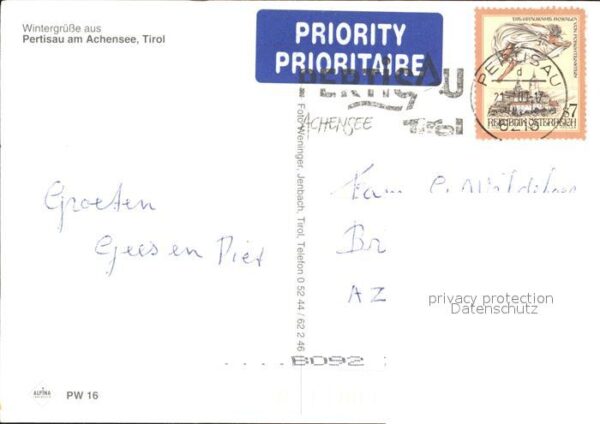 Wintergrüße aus
Pertisau am Achensee, Tirol
PRIORITY
PRIORITAIRE
PERTISAU
ACHENSEE
Tirol
PERTISAU
6213
REPUBLIK ÖSTERREICH
S7
Foto Weninger, Jenbach, Tirol, Telefon 0 52 44 / 62 2 46
Groeten
Gees en Piet
Fam
Br
AZ
privacy protection
Datenschutz
B092
ALPINA
PW 16